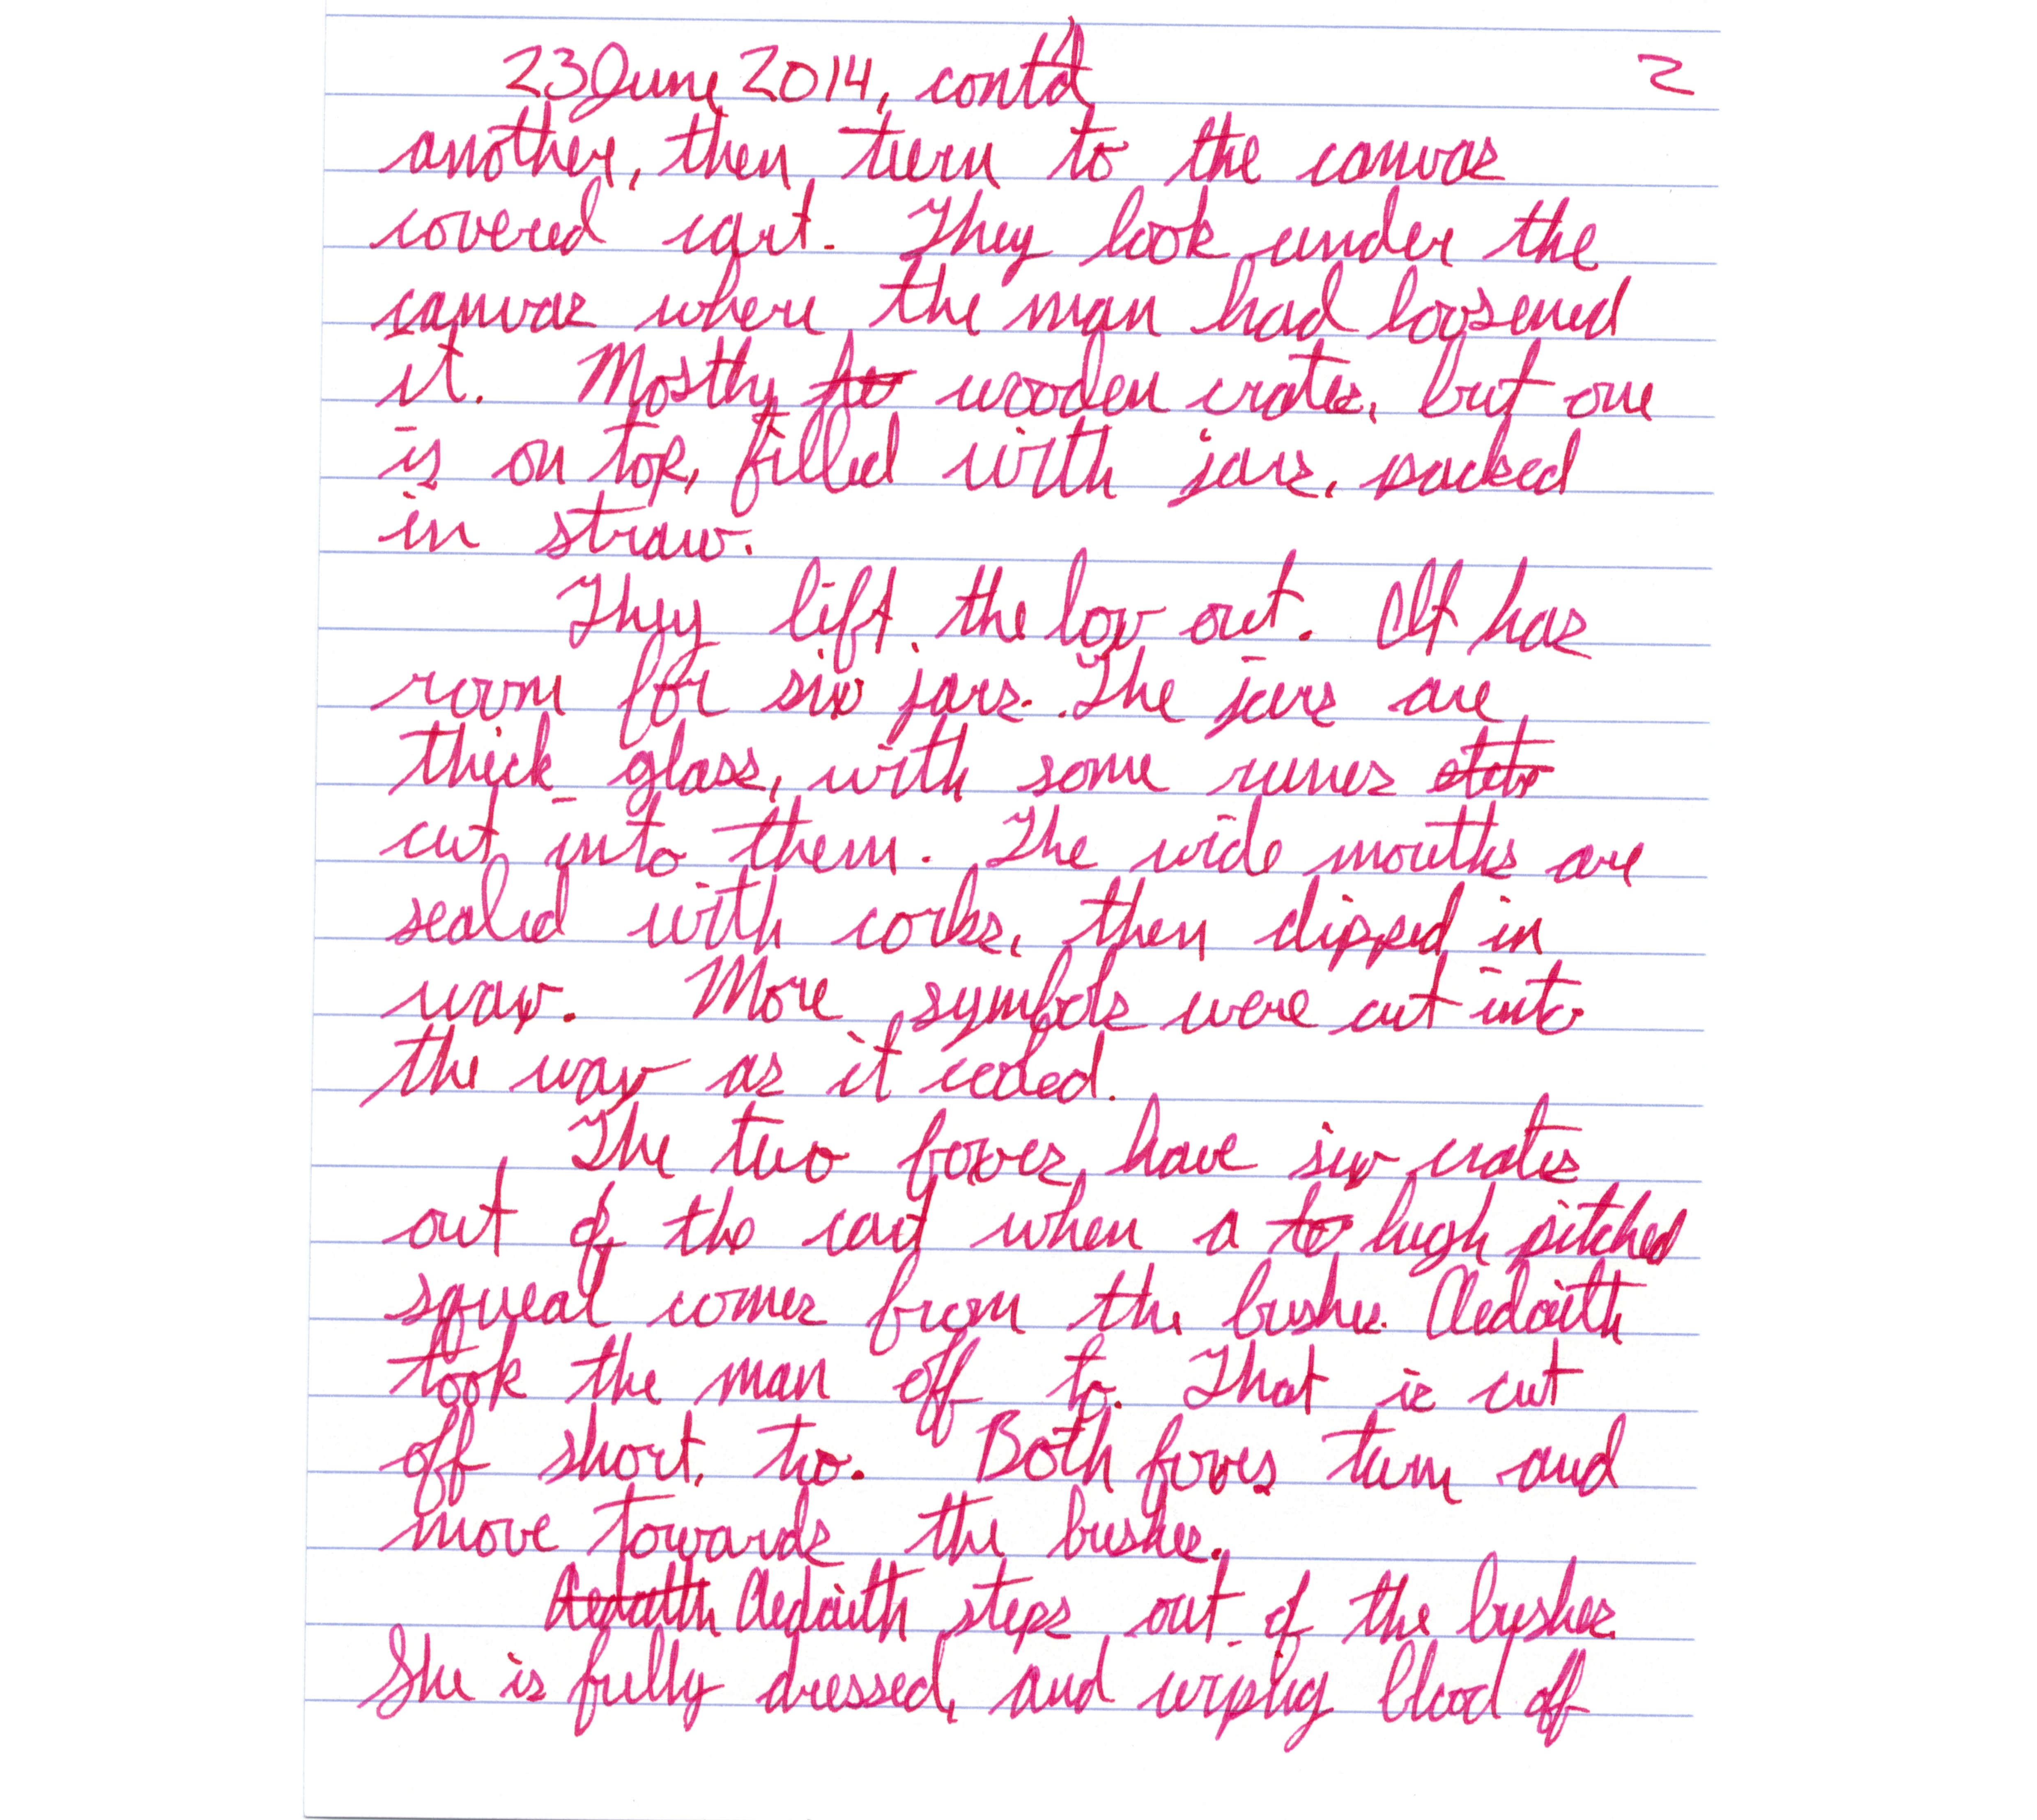 23 June 2014, cont'd 2
another, then turn to the canvas
covered cart. They look under the
canvas where the man had loosened
it. Mostly wooden crates, but one
is on top, filled with jars, packed
in straw.
They lift the box out. It has
room for six jars. The jars are
thick glass, with some runes
cut into them. The wide mouths are
sealed with corks, then dipped in
wax. More symbols were cut into
the wax as it cooled.
The two foxes have six crates
out of the cart when a to high pitched
squeal comes from the bushes. Aedaith
took the man off to. That is cut
off short, too. Both foxes turn and
move towards the bushes.
Aedaith Aedaith steps out of the bushes.
She is fully dressed, and wiping blood off